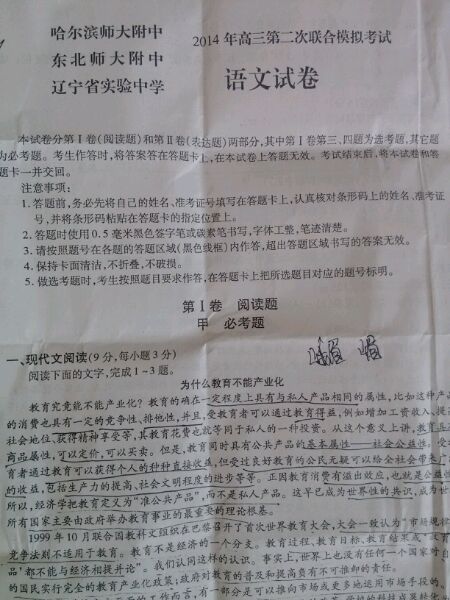 哈尔滨师大附中
东北师大附中
辽宁省实验中学
2014年高三第二次联合模拟考试
语文试卷
本试卷分第Ⅰ卷(阅读题)和第Ⅱ卷(表达题)两部分,其中第Ⅰ卷第三、四题为选考题,其它题
为必考题。考生作答时,将答案答在答题卡上,在本试卷上答题无效。考试结束后,将本试卷和答
题卡一并交回。
注意事项:
1.答题前,务必先将自己的姓名、准考证号填写在答题卡上,认真核对条形码上的姓名、准考证
号,并将条形码粘贴在答题卡的指定位置上。
2.答题时使用0.5毫米黑色签字笔或碳素笔书写,字体工整,笔迹清楚。
3.请按照题号在各题的答题区域(黑色线框)内作答,超出答题区域书写的答案无效。
4.保持卡面清洁,不折叠,不破损。
5.做选考题时,考生按照题目要求作答,在答题卡上把所选题目对应的题号标明。
第Ⅰ卷 阅读题
甲 必考题
一、现代文阅读(9分,每小题3分)
阅读下面的文字,完成1~3题。
为什么教育不能产业化
教育究竟能不能产业化?教育的确在一定程度上具有与私人产品相同的属性,比如这种产品
的消费也具有一定的竞争性、排他性,并且,受教育者可以通过教育得益,例如增加工资收入、提高
社会地位、获得精神享受等,其教育花费也就等同于私人的一种投资。从这个意义上讲,教育具有
商品属性,可以定价,可以买卖。但是,教育同时具有公共产品的基本属性——社会公益性。受教
育者通过教育可以获得个人的种种直接收益,但受过良好教育的公民无疑可以给全社会带来广泛
的收益,包括生产力的提高、社会文明程度的进步等等。正因教育消费有溢出效应,也就是公益性,
所以,经济学把教育定义为“准公共产品”,而不是私人产品。这早已成为世界性的共识,成为世界
所有国家主要由政府举办教育事业的最重要的理论根基。
1999年10月联合国教科文组织在巴黎召开了首次世界教育大会,大会一致认为“市场规律和
竞争法则不适用于教育。教育不是经济的一个分支。教育过程,教育目标,教育结果或‘教育产
品’都不能与经济相提并论”。我们认同这样的认识。事实上,世界上也没有任何一个国家对自己
的国民实行完全的教育产业化政策;政府对教育的普及和提高负有不可推卸的责任。